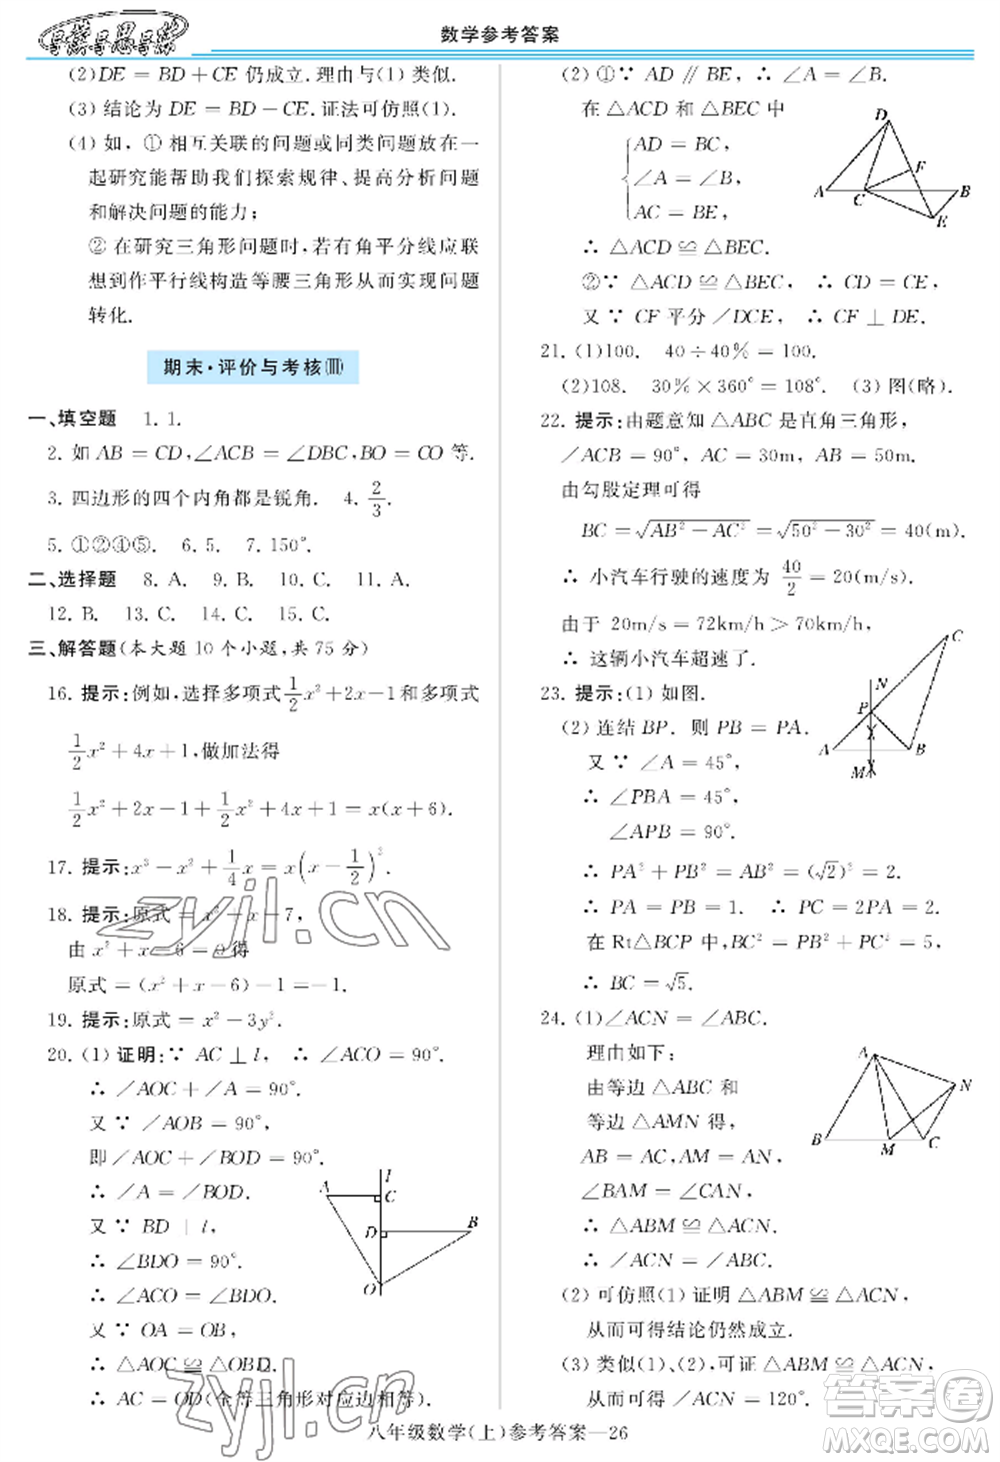 导学导思导练
数学参考答案
(2) DE = BD + CE 仍成立. 理由与(1) 类似.
(3) 结论为 DE = BD − CE. 证法可仿照(1).
(4) 如, ① 相互关联的问题或同类问题放在一
起研究能帮助我们探索规律、提高分析问题
和解决问题的能力;
② 在研究三角形问题时, 若有角平分线应联
想到作平行线构造等腰三角形从而实现问题
转化.
期末·评价与考核(Ⅲ)
一、填空题 1. 1.
2. 如 AB = CD, ∠ACB = ∠DBC, BO = CO 等.
3. 四边形的四个内角都是锐角. 4. 2/3.
5. ①②④⑤. 6. 5. 7. 150°.
二、选择题 8. A. 9. B. 10. C. 11. A.
12. B. 13. C. 14. C. 15. C.
三、解答题(本大题 10 个小题, 共 75 分)
16. 提示: 例如, 选择多项式 1/2 x² + 2x − 1 和多项式
1/2 x² + 4x + 1, 做加法得
1/2 x² + 2x − 1 + 1/2 x² + 4x + 1 = x(x + 6).
17. 提示: x³ − x² + 1/4 x = x(x − 1/2)².
18. 提示: 原式 = x² + x − 7,
由 x² + x − 6 = 0 得
原式 = (x² + x − 6) − 1 = −1.
19. 提示: 原式 = x² − 3y².
20. (1) 证明: ∵ AC ⊥ l, ∴ ∠ACO = 90°.
∴ ∠AOC + ∠A = 90°.
又 ∵ ∠AOB = 90°,
即 ∠AOC + ∠BOD = 90°.
∴ ∠A = ∠BOD.
又 ∵ BD ⊥ l,
∴ ∠BDO = 90°.
∴ ∠ACO = ∠BDO.
又 ∵ OA = OB,
∴ △AOC ≌ △OBD.
∴ AC = OD(全等三角形对应边相等).
l
A
C
D
B
O
(2) ①∵ AD ∥ BE, ∴ ∠A = ∠B.
在 △ACD 和 △BEC 中
AD = BC,
∠A = ∠B,
AC = BE,
∴ △ACD ≌ △BEC.
②∵ △ACD ≌ △BEC, ∴ CD = CE.
又 ∵ CF 平分 ∠DCE, ∴ CF ⊥ DE.
D
F
A
C
B
E
21. (1)100. 40 ÷ 40% = 100.
(2)108. 30% × 360° = 108°. (3) 图(略).
22. 提示: 由题意知 △ABC 是直角三角形,
∠ACB = 90°, AC = 30m, AB = 50m.
由勾股定理可得
BC = √(AB² − AC²) = √(50² − 30²) = 40(m).
∴ 小汽车行驶的速度为 40/2 = 20(m/s).
由于 20m/s = 72km/h > 70km/h,
∴ 这辆小汽车超速了.
23. 提示: (1) 如图.
(2) 连结 BP. 则 PB = PA.
又 ∵ ∠A = 45°,
∴ ∠PBA = 45°,
∠APB = 90°.
∴ PA² + PB² = AB² = (√2)² = 2.
∴ PA = PB = 1. ∴ PC = 2PA = 2.
在 Rt△BCP 中, BC² = PB² + PC² = 5,
∴ BC = √5.
C
N
P
A
B
M
24. (1)∠ACN = ∠ABC.
理由如下:
由等边 △ABC 和
等边 △AMN 得,
AB = AC, AM = AN,
∠BAM = ∠CAN.
∴ △ABM ≌ △ACN.
∴ ∠ACN = ∠ABC.
A
N
B
M
C
(2) 可仿照(1) 证明 △ABM ≌ △ACN,
从而可得结论仍然成立.
(3) 类似(1)、(2), 可证 △ABM ≌ △ACN,
从而可得 ∠ACN = 120°.
八年级数学(上)参考答案—26
zyjl.cn
zyjl.cn
答案圈